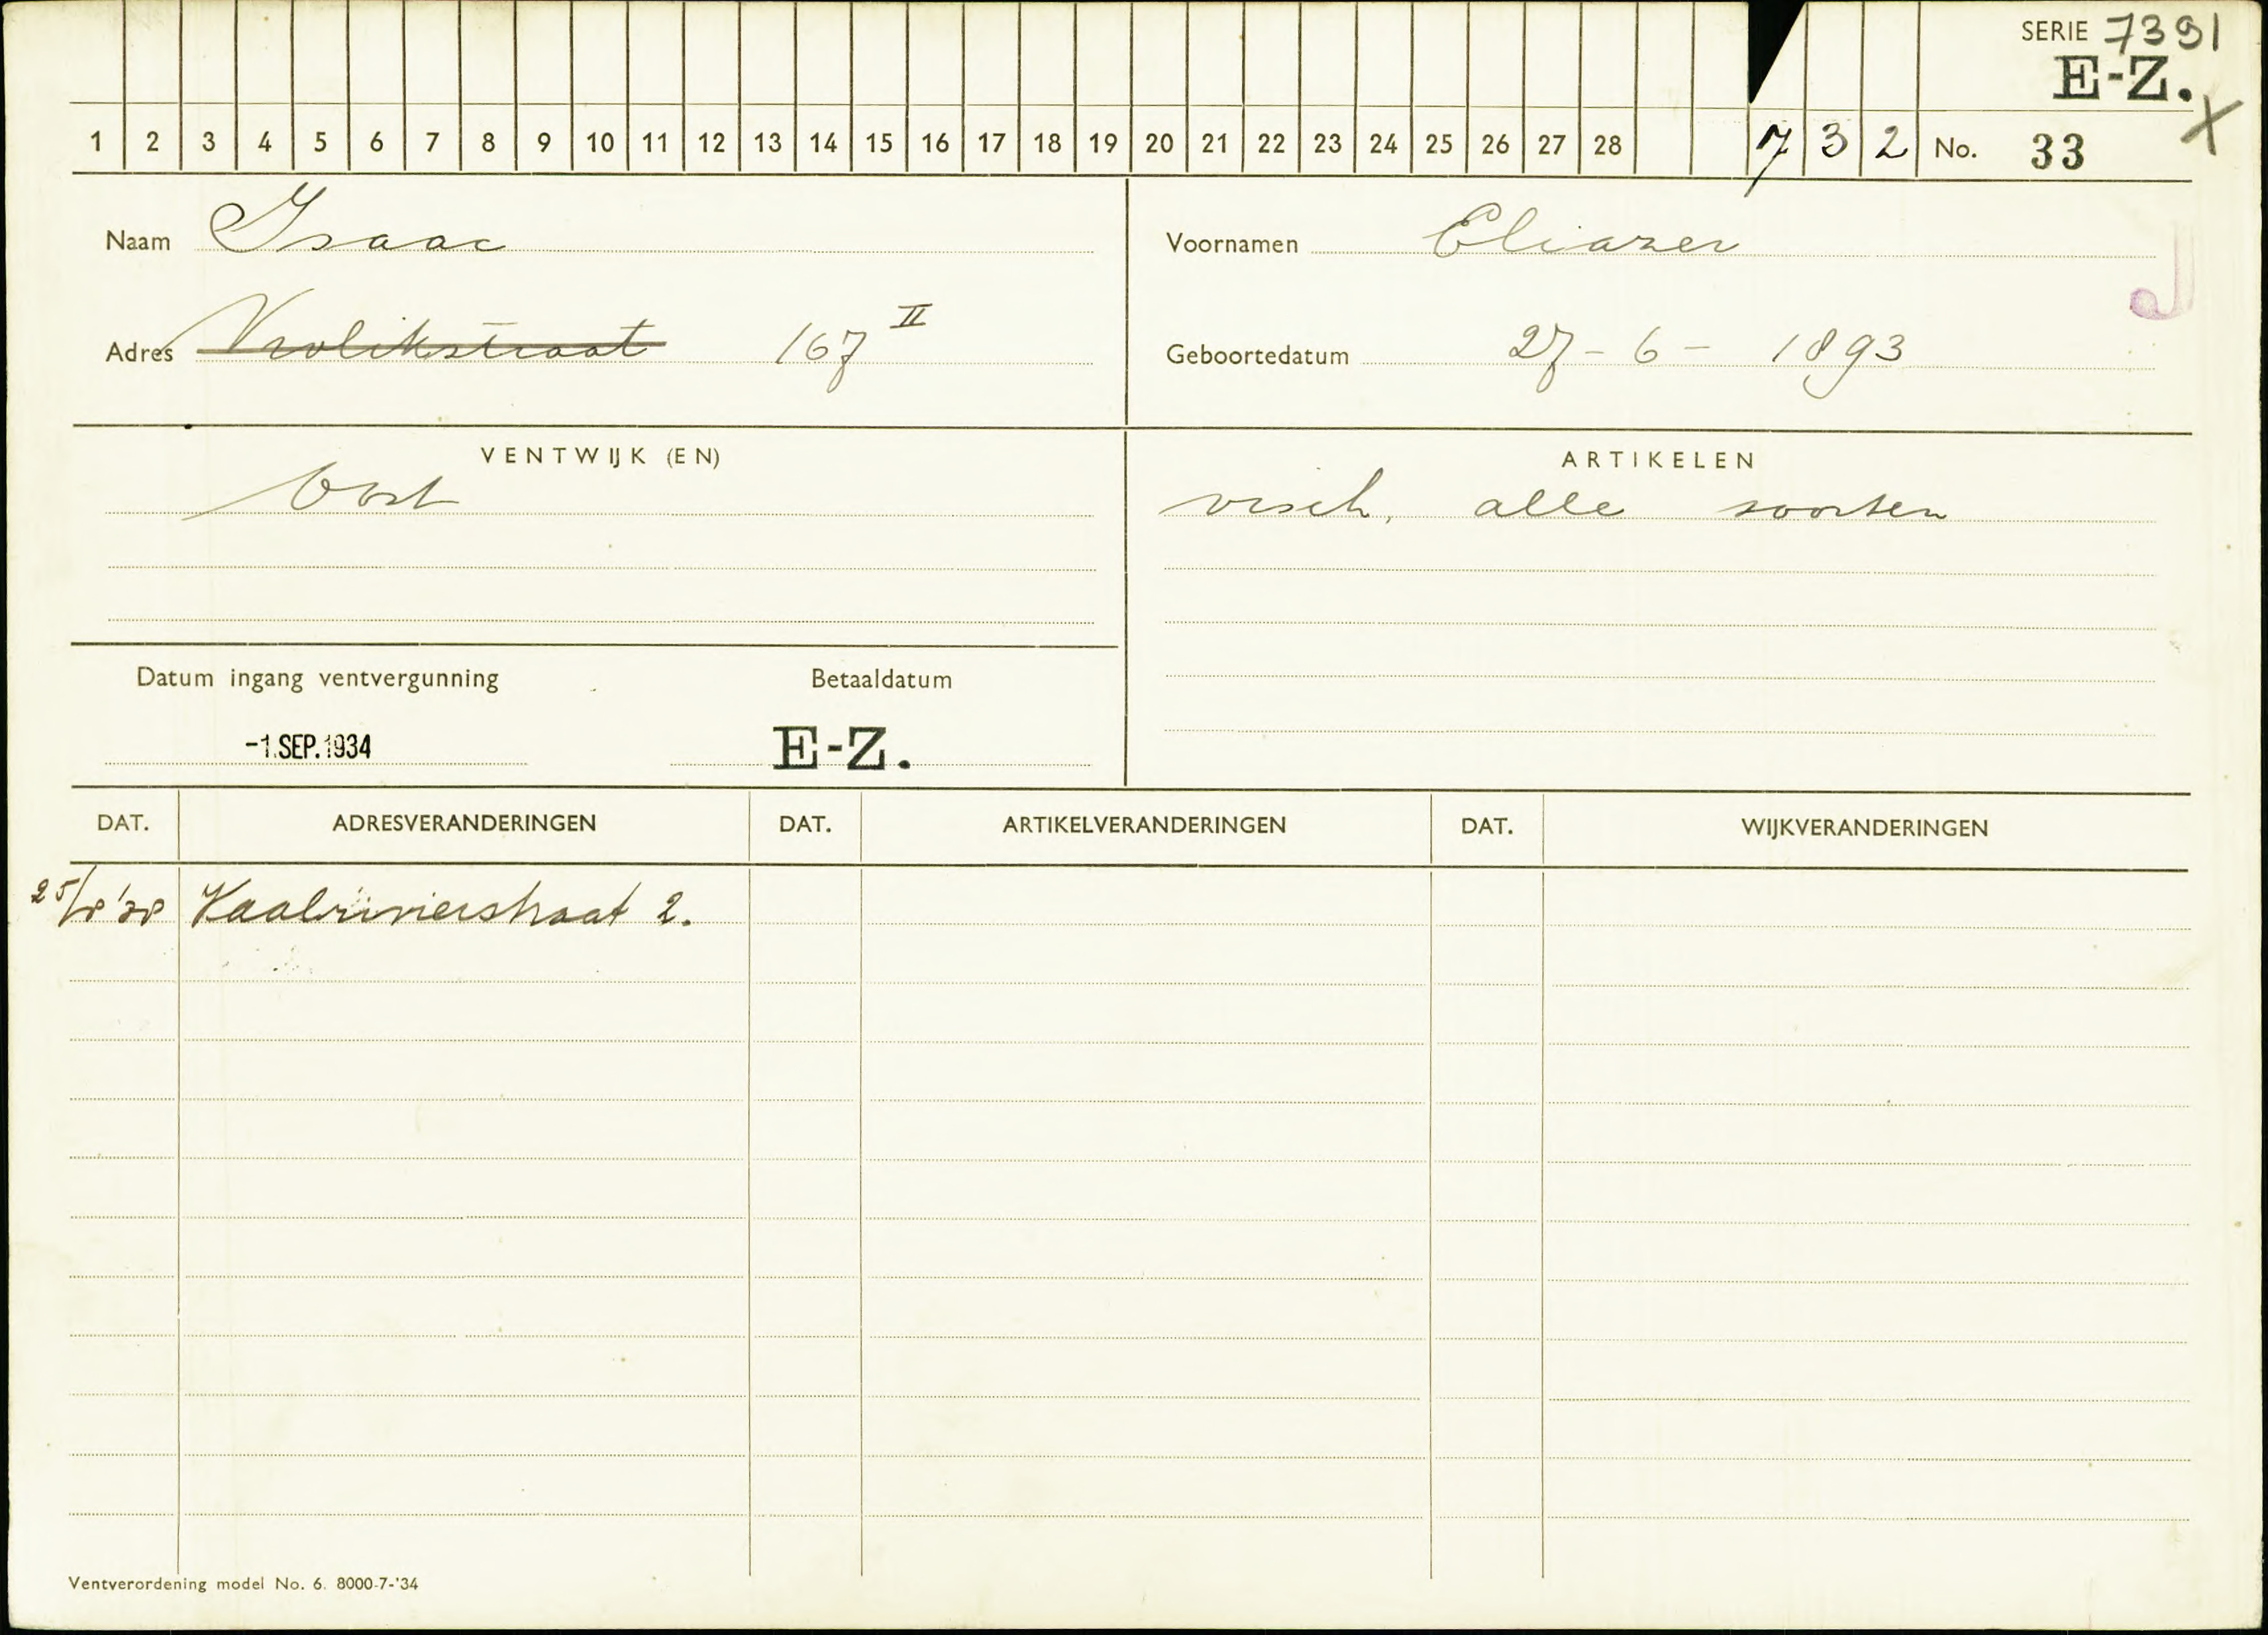 SERIE 7391
E-Z.
X
1 2 3 4 5 6 7 8 9 10 11 12 13 14 15 16 17 18 19 20 21 22 23 24 25 26 27 28 7 3 2 No. 33
Naam Isaac
Voornamen Eliazer
J
Adres Vrolikstraat 167 II
Geboortedatum 27-6-1893
VENTWIJK (EN)
Oost
ARTIKELEN
visch, alle soorten
Datum ingang ventvergunning
Betaaldatum
-1.SEP.1934
E-Z.
DAT. ADRESVERANDERINGEN DAT. ARTIKELVERANDERINGEN DAT. WIJKVERANDERINGEN
25/8 '38 Vaalrivierstraat 2.
Ventverordening model No. 6. 8000-7-'34